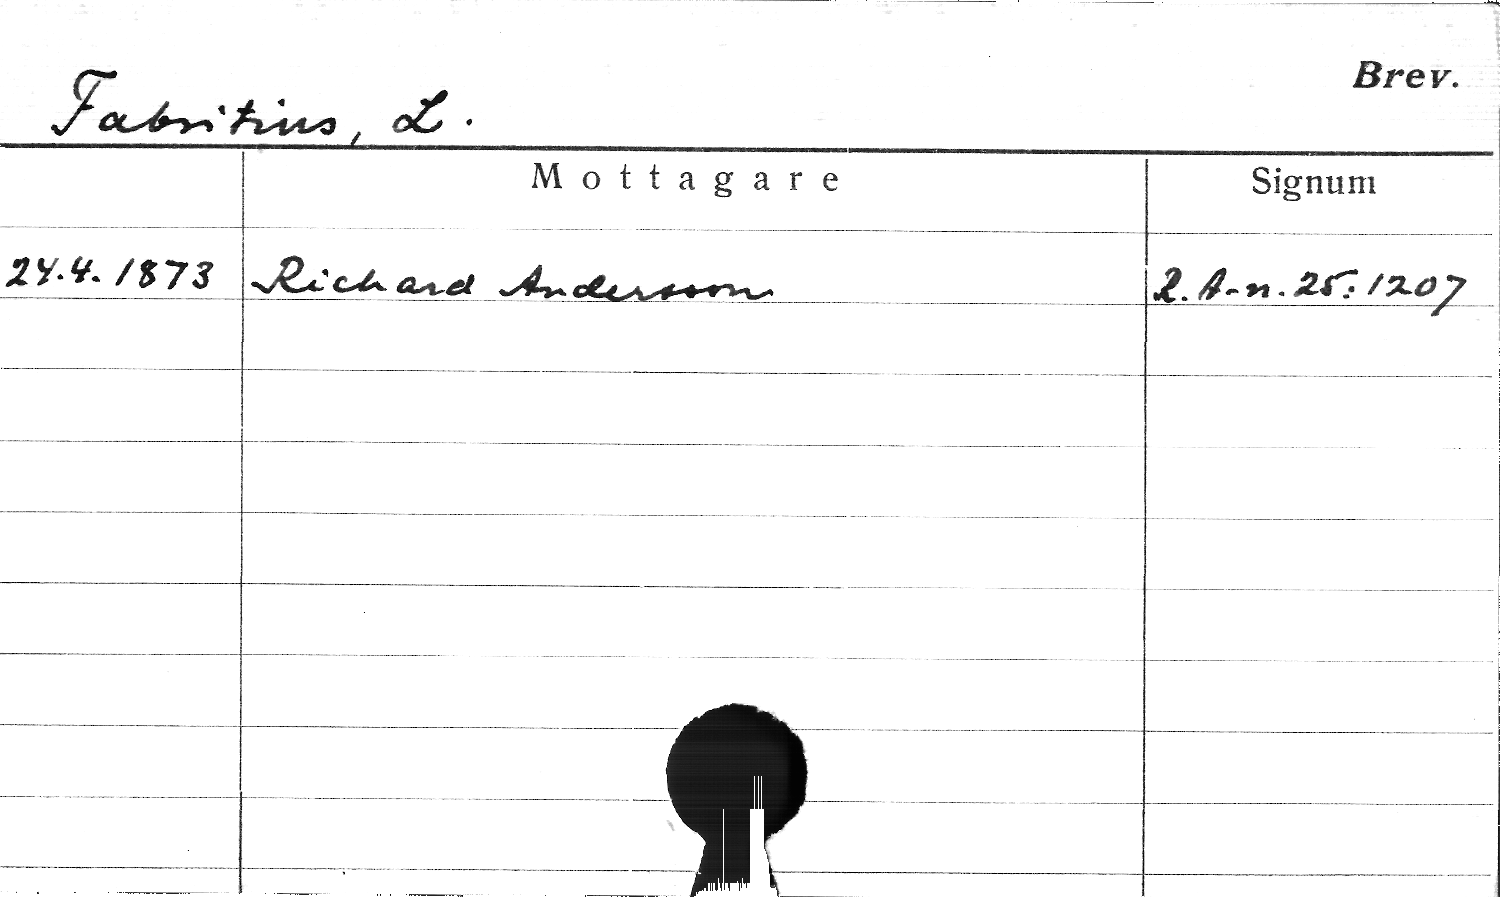 Brev.
Fabritius, L.
Mottagare Signum
24.4.1873 Richard Andersson R. A-n. 25:1207